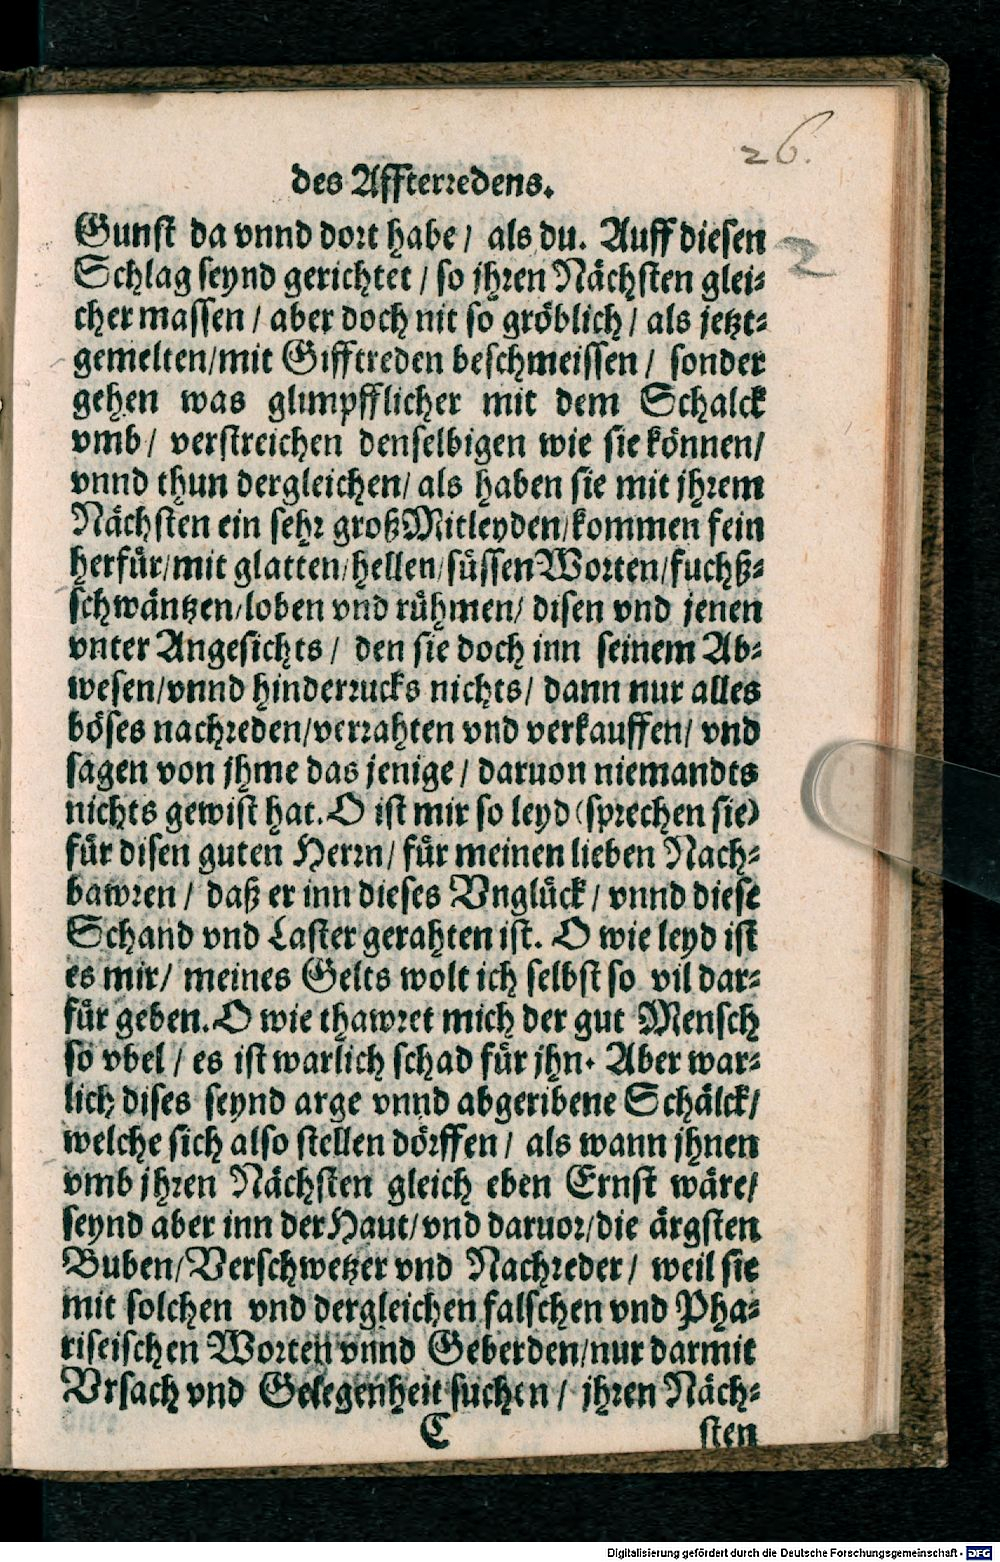 26.
des Affterredens.
Gunst da vnnd dort habe / als du. Auff diesen
2
Schlag seynd gerichtet / so jhren Nächsten glei-
cher massen / aber doch nit so gröblich / als jetzt-
gemelten/mit Gifftreden beschmeissen / sonder
gehen was glimpfflicher mit dem Schalck
vmb / verstreichen denselbigen wie sie können/
vnnd thun dergleichen/ als haben sie mit jhrem
Nächsten ein sehr groß Mitleyden/kommen fein
herfür/mit glatten/hellen/süssen Worten/fuchß-
schwäntzen/loben vnd rühmen/ disen vnd jenen
vnter Angesichts / den sie doch inn seinem Ab-
wesen/vnnd hinderrucks nichts/ dann nur alles
böses nachreden/verrahten vnd verkauffen/ vnd
sagen von jhme das jenige / daruon niemandts
nichts gewist hat. O ist mir so leyd (sprechen sie)
für disen guten Herrn/ für meinen lieben Nach-
bawren / daß er inn dieses Vnglück / vnnd diese
Schand vnd Laster gerahten ist. O wie leyd ist
es mir/ meines Gelts wolt ich selbst so vil dar-
für geben. O wie thawret mich der gut Mensch
so vbel / es ist warlich schad für jhn. Aber war-
lich dises seynd arge vnnd abgeribene Schälck/
welche sich also stellen dörffen / als wann jhnen
vmb jhren Nächsten gleich eben Ernst wäre/
seynd aber inn der Haut/vnd daruor/die ärgsten
Buben/Verschwetzer vnd Nachreder / weil sie
mit solchen vnd dergleichen falschen vnd Pha-
riseischen Worten vnnd Geberden/nur darmit
Vrsach vnd Gelegenheit suchen / jhren Näch-
C sten
Digitalisierung gefördert durch die Deutsche Forschungsgemeinschaft - DFG